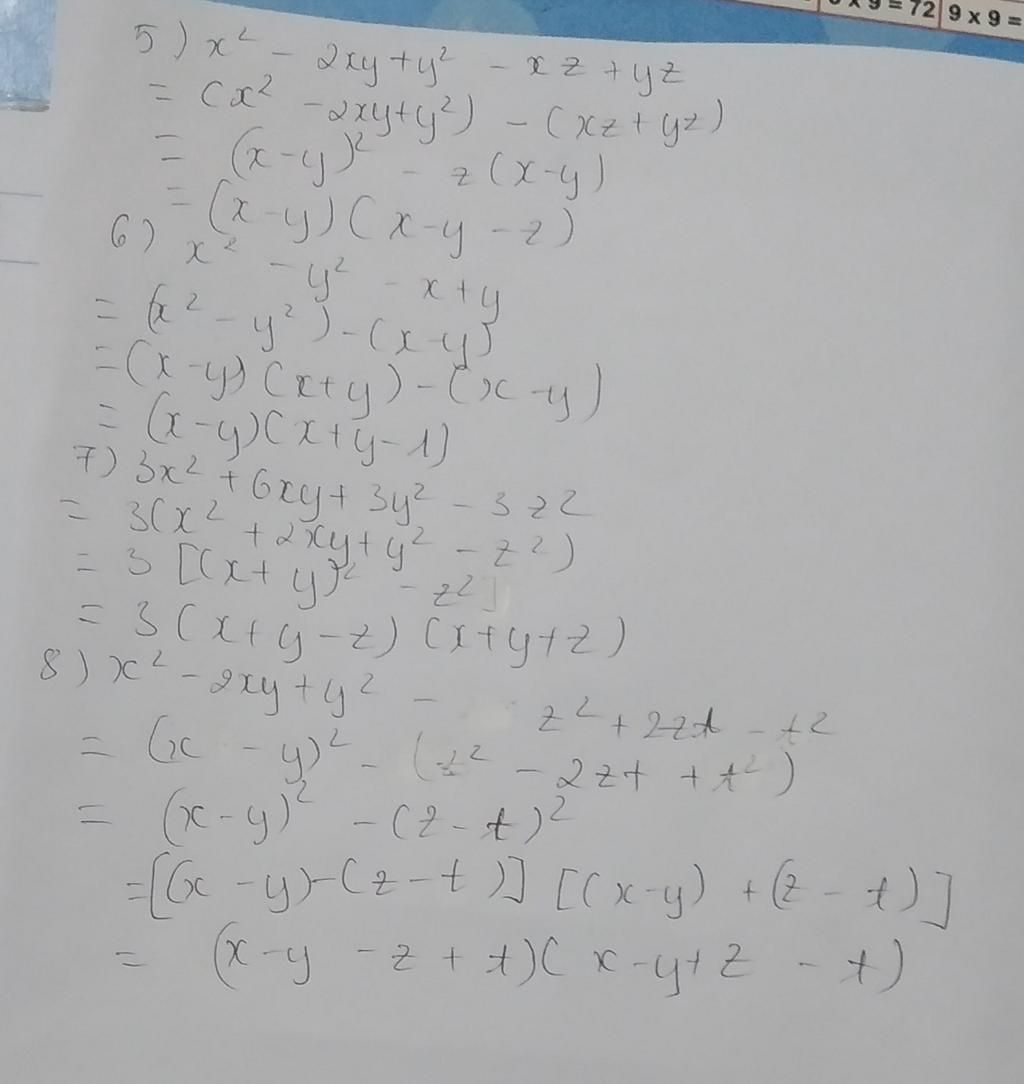 x 9 = 72 9 x 9 =
5) x² - 2xy + y² - xz + yz
= (x² - 2xy + y²) - (xz + yz)
= (x - y)² - z (x - y)
= (x - y) (x - y - z)
6) x² - y² - x + y
= (x² - y²) - (x - y)
= (x - y) (x + y) - (x - y)
= (x - y) (x + y - 1)
7) 3x² + 6xy + 3y² - 3z²
= 3(x² + 2xy + y² - z²)
= 3 [(x + y)² - z²]
= 3 (x + y - z) (x + y + z)
8) x² - 2xy + y² - z² + 2zt - t²
= (x - y)² - (z² - 2zt + t²)
= (x - y)² - (z - t)²
= [(x - y) - (z - t)] [(x - y) + (z - t)]
= (x - y - z + t) (x - y + z - t)